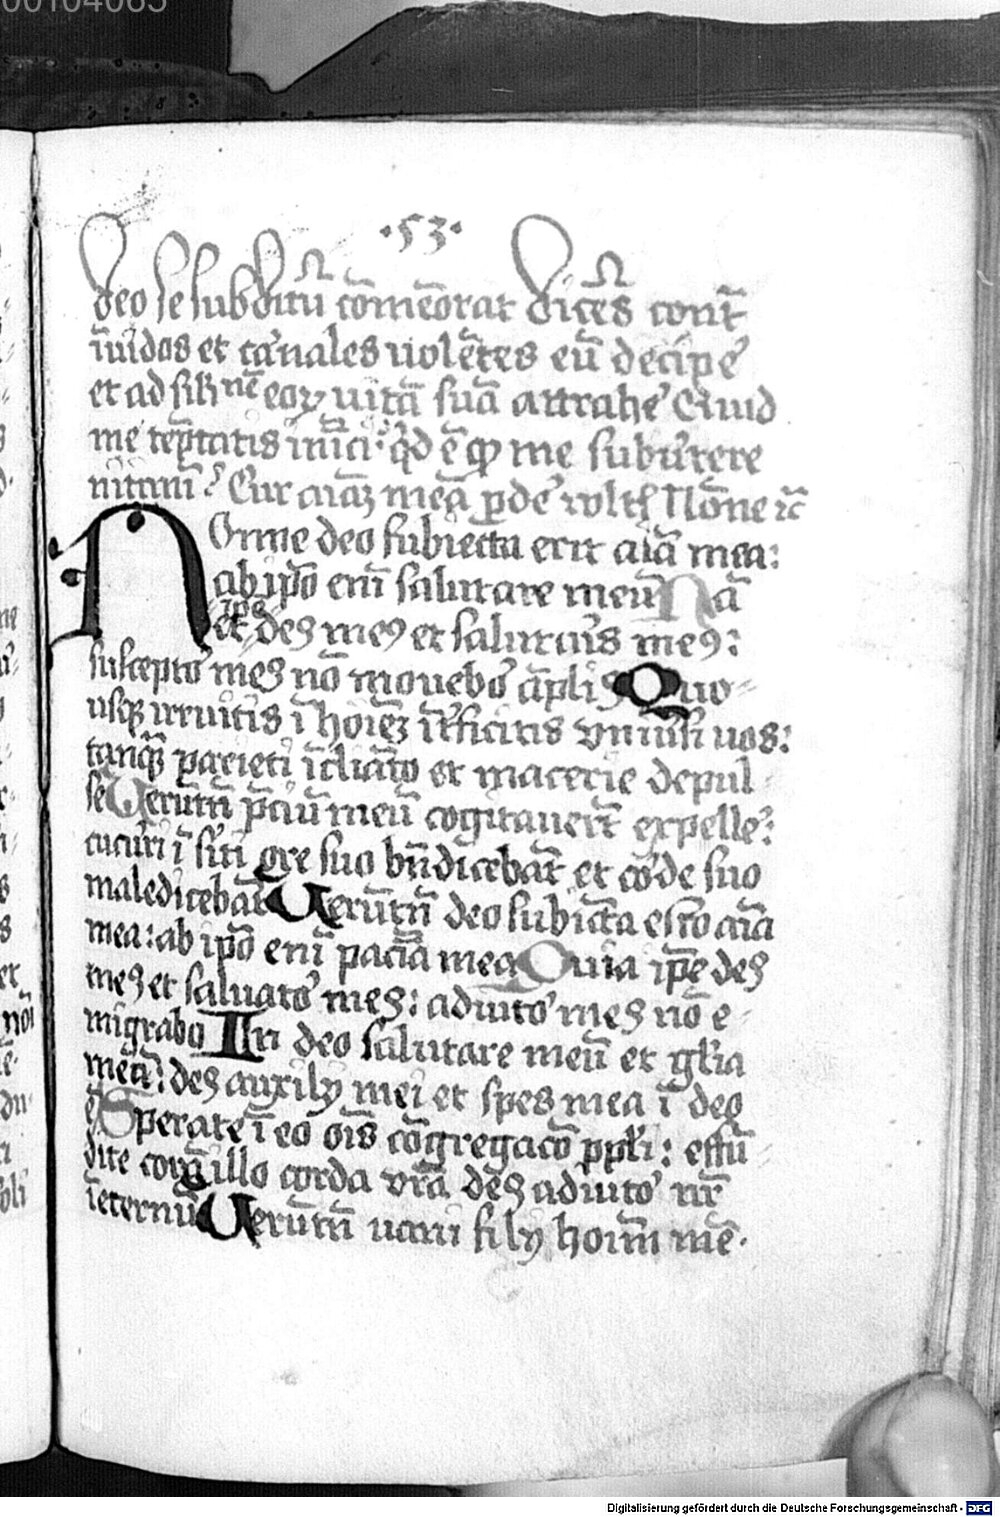 00104065
·53·
deo se subditū cōmeōrat dicēs cont̄
īuidos et ca'nales uolētes eū decipe'
et ad sił'nē eoꝝ uitā suā attrahe' Quid
me tēptatis inīci' q̇d ē me subu'tere
nitimī? Cur aīaꝫ meā ꝑde' Nōne ⁊c̄
Nonne deo subiecta erit aīa mea:
ab ip̄o enī salutare meū Nā
et ip̄e deꝰ meꝰ et salutaris meꝰ:
suscepto' meꝰ nō mouebo' āpliꝰ Quo-
usqꝫ irruitis ī hoīeꝫ īt'ficitis uniu'si uos:
tanqꝫ parieti īcliato et macerie depul-
se Uerūtn̄ p̄ciū meū cogitauer̄t expelle':
cucu'ri ī siti ore suo bn̄dicebāt et co'de suo
maledicebāt Uerūtn̄ deo subiecta esto aīa
mea: ab ip̄o enī paciā mea Quia ip̄e deꝰ
meꝰ et saluato' meꝰ: adiuto' meꝰ nō e-
migrabo In deo salutare meū et gl̄ia
mea: deꝰ auxilij mei et spes mea ī deo
ē Sperate ī eo oīs cōgregacō ppłi: effū-
dite corā illo corda vr̄a deꝰ adiuto' nr̄
īeternū Uerūtn̄ uani filij hoīm mē·
Digitalisierung gefördert durch die Deutsche Forschungsgemeinschaft - DFG